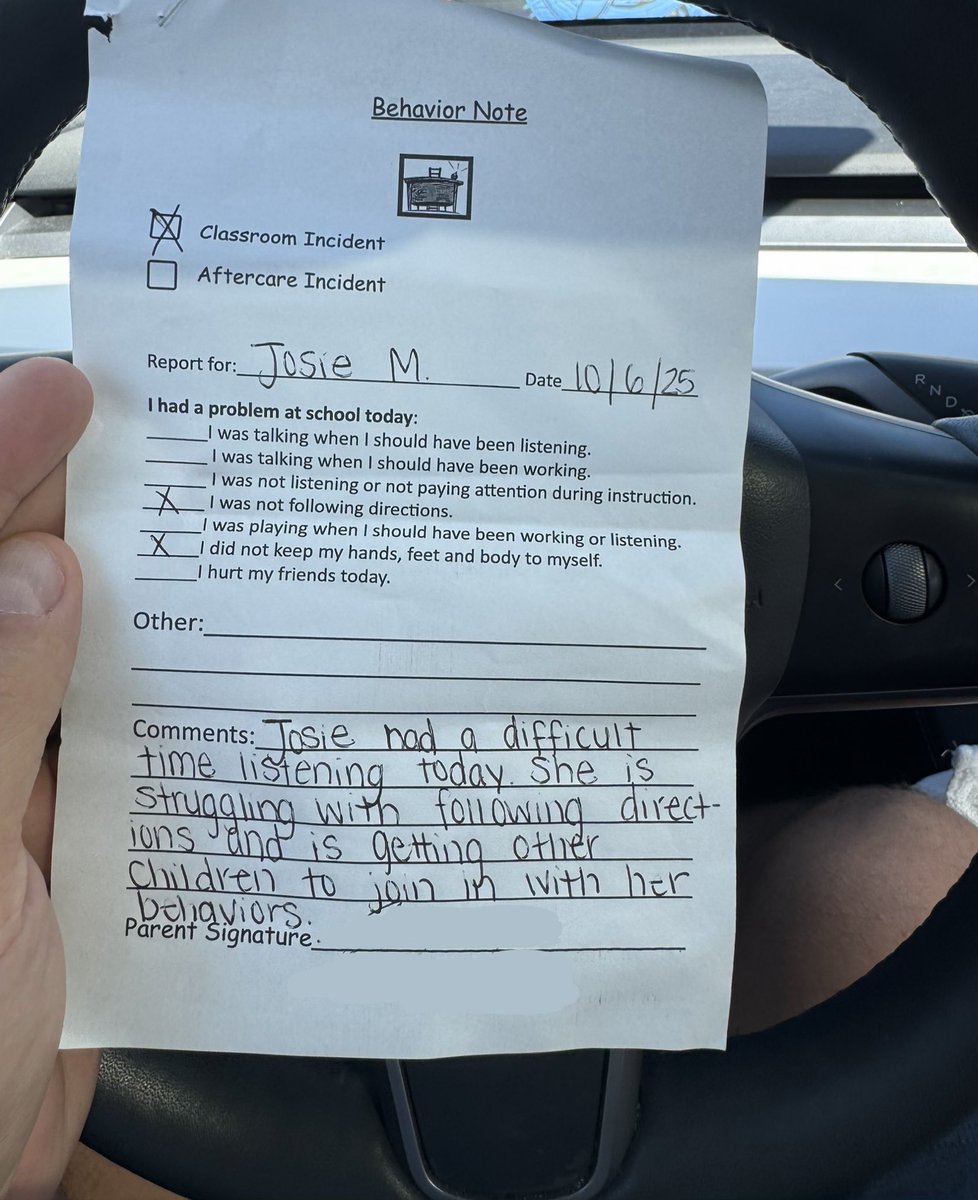 Behavior Note
Classroom Incident
Aftercare Incident
Report for: Josie M. Date 10/6/25
I had a problem at school today:
I was talking when I should have been listening.
I was talking when I should have been working.
I was not listening or not paying attention during instruction.
X I was not following directions.
I was playing when I should have been working or listening.
X I did not keep my hands, feet and body to myself.
I hurt my friends today.
Other:
Comments: Josie had a difficult
time listening today. She is
struggling with following direct-
ions and is getting other
children to join in with her
behaviors.
Parent Signature.
R N D